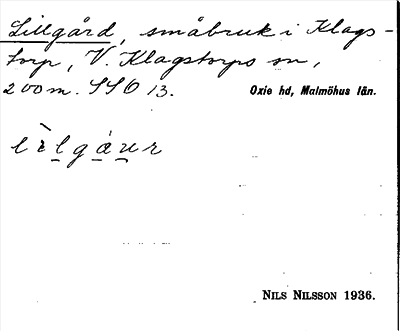 Lillgård, småbruk i Klags-
torp, V. Klagstorps sn,
200 m. SSO 13.
Oxie hd, Malmöhus län.
lìlgáur
NILS NILSSON 1936.